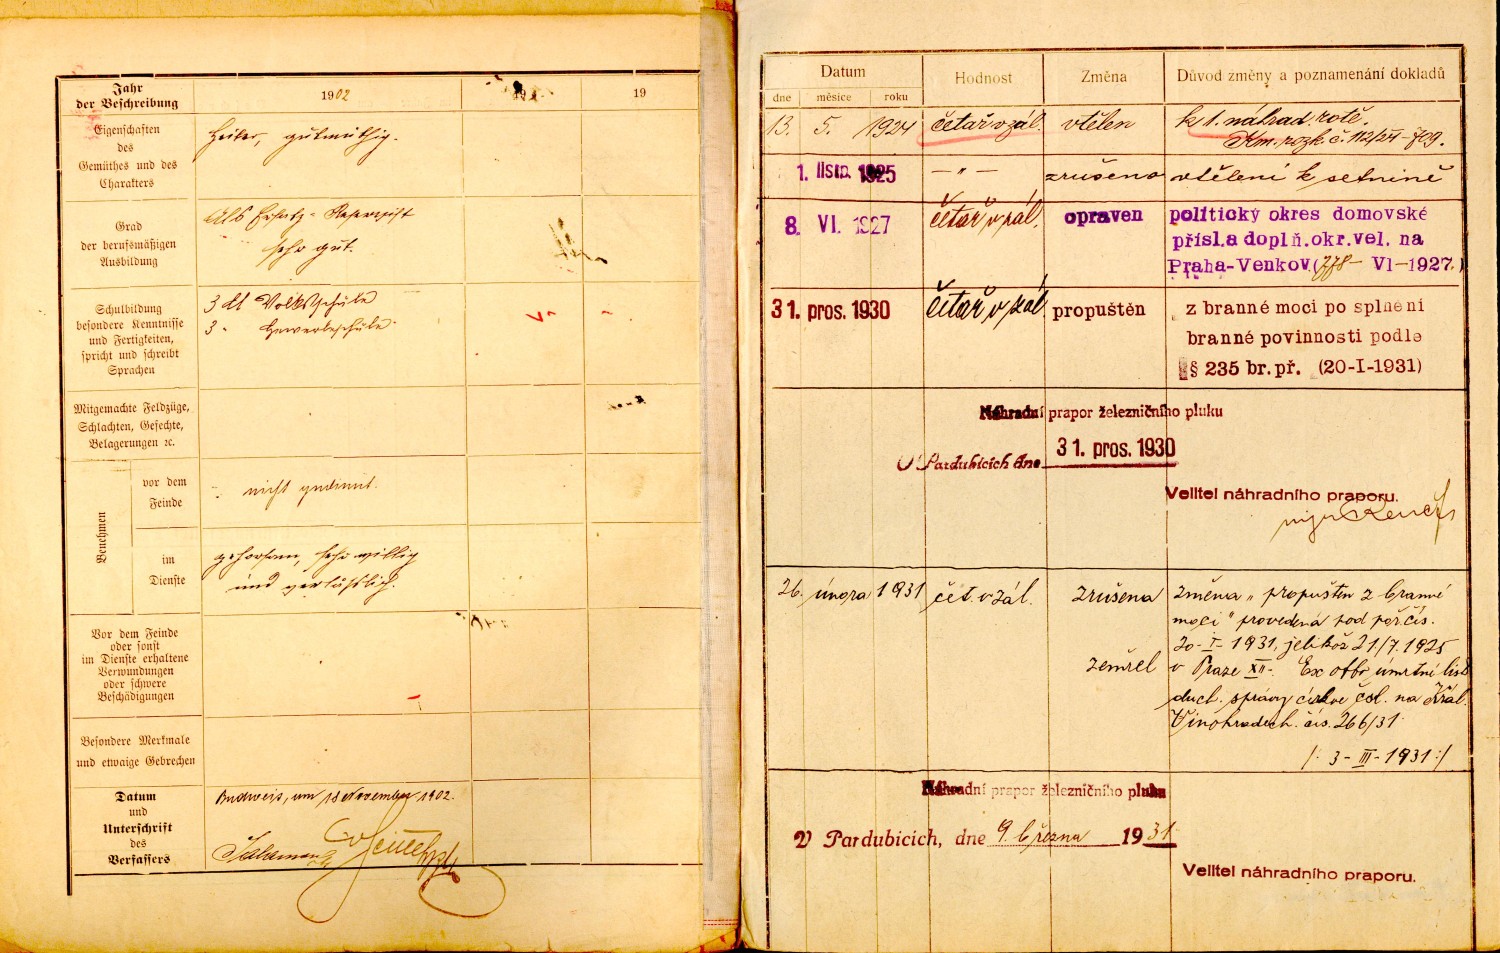 Jahr
der Beschreibung
1902
19
19
Eigenschaften
des
Gemüthes und des
Charakters
heiter, gutmüthig.
Grad
der berufsmäßigen
Ausbildung
Als Ersatz-Reservist
sehr gut.
Schulbildung
besondere Kenntnisse
und Fertigkeiten,
spricht und schreibt
Sprachen
3 Kl Volksschule
3 " Gewerbeschule.
Mitgemachte Feldzüge,
Schlachten, Gefechte,
Belagerungen ꝛc.
Benehmen
vor dem
Feinde
nicht gedient.
im
Dienste
gehorsam, sehr willig
und verläßlich.
Vor dem Feinde
oder sonst
im Dienste erhaltene
Verwundungen
oder schwere
Beschädigungen
Besondere Merkmale
und etwaige Gebrechen
Datum
und
Unterschrift
des
Verfassers
Budweis, am 18 November 1902.
Datum
Hodnost
Změna
Důvod změny a poznamenání dokladů
dne
měsíce
roku
13. 5. 1924 četař v zál. vtělen k 1. náhrad. rotě.
Km. rozk. č. 112/24-
1. listp. 1925 — " — zrušeno vtělení k setnině
8. VI. 1927 četař v zál. opraven politický okres domovské
přísl. a doplň. okr. vel. na
Praha-Venkov. (778- VI-1927.)
31. pros. 1930 četař v zál. propuštěn z branné moci po splnění
branné povinnosti podle
§ 235 br. př. (20-I-1931)
Náhradní prapor železničního pluku
V Pardubicích dne 31. pros. 1930
Velitel náhradního praporu.
26. února 1931 čet. v zál. zrušena změna „propuštěn z branné
moci" provedená pod poř. čís.
20-I-1931, jelikož 21/7. 1925
zemřel v Praze XII-. Ex offo úmrtní list
duch. správy církve čsl. na Král.
Vinohradech. čís. 266/31.
/: 3-III-1931 :/
Náhradní prapor železničního pluku
V Pardubicích, dne 9. března 1931.
Velitel náhradního praporu.